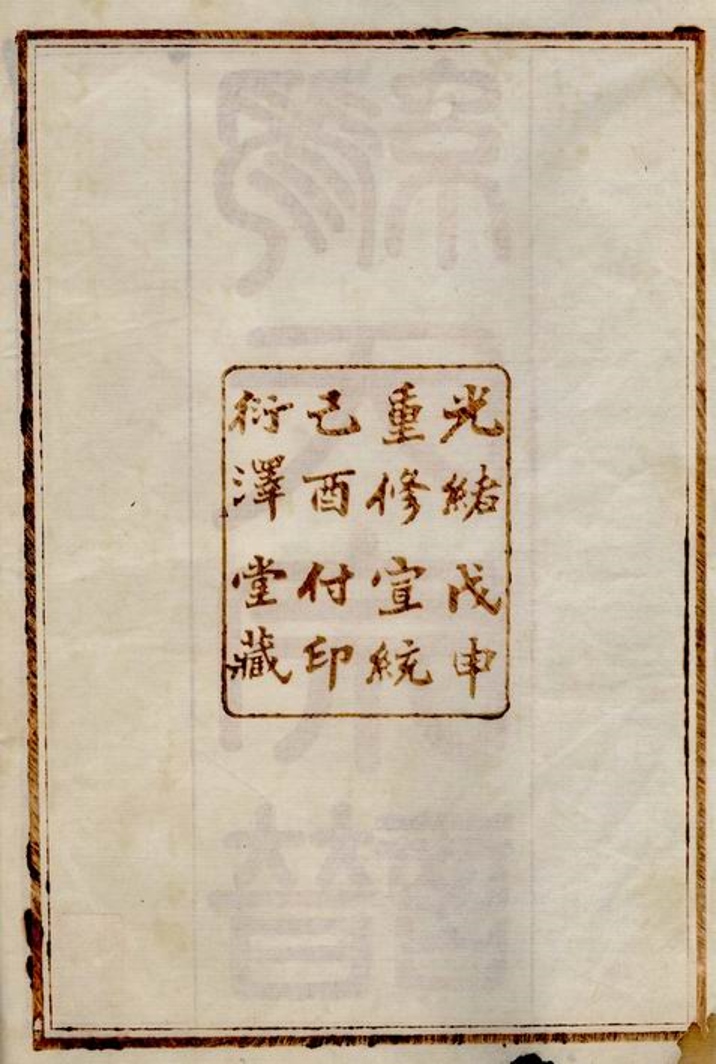 光緒戊申
重修宣統
己酉付印
衍澤堂藏